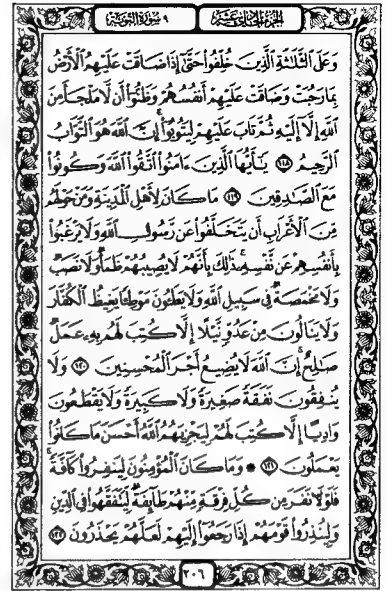 الجزء الحادي عشر ٩ سورة التوبة
وَعَلَى ٱلثَّلَٰثَةِ ٱلَّذِينَ خُلِّفُوا۟ حَتَّىٰٓ إِذَا ضَاقَتْ عَلَيْهِمُ ٱلْأَرْضُ
بِمَا رَحُبَتْ وَضَاقَتْ عَلَيْهِمْ أَنفُسُهُمْ وَظَنُّوٓا۟ أَن لَّا مَلْجَأَ مِنَ
ٱللَّهِ إِلَّآ إِلَيْهِ ثُمَّ تَابَ عَلَيْهِمْ لِيَتُوبُوٓا۟ۚ إِنَّ ٱللَّهَ هُوَ ٱلتَّوَّابُ
ٱلرَّحِيمُ ١١٨ يَٰٓأَيُّهَا ٱلَّذِينَ ءَامَنُوا۟ ٱتَّقُوا۟ ٱللَّهَ وَكُونُوا۟
مَعَ ٱلصَّٰدِقِينَ ١١٩ مَا كَانَ لِأَهْلِ ٱلْمَدِينَةِ وَمَنْ حَوْلَهُم
مِّنَ ٱلْأَعْرَابِ أَن يَتَخَلَّفُوا۟ عَن رَّسُولِ ٱللَّهِ وَلَا يَرْغَبُوا۟
بِأَنفُسِهِمْ عَن نَّفْسِهِۦۚ ذَٰلِكَ بِأَنَّهُمْ لَا يُصِيبُهُمْ ظَمَأٌ وَلَا نَصَبٌ
وَلَا مَخْمَصَةٌ فِى سَبِيلِ ٱللَّهِ وَلَا يَطَـُٔونَ مَوْطِئًا يَغِيظُ ٱلْكُفَّارَ
وَلَا يَنَالُونَ مِنْ عَدُوٍّ نَّيْلًا إِلَّا كُتِبَ لَهُم بِهِۦ عَمَلٌ
صَٰلِحٌۚ إِنَّ ٱللَّهَ لَا يُضِيعُ أَجْرَ ٱلْمُحْسِنِينَ ١٢٠ وَلَا
يُنفِقُونَ نَفَقَةً صَغِيرَةً وَلَا كَبِيرَةً وَلَا يَقْطَعُونَ
وَادِيًا إِلَّا كُتِبَ لَهُمْ لِيَجْزِيَهُمُ ٱللَّهُ أَحْسَنَ مَا كَانُوا۟
يَعْمَلُونَ ١٢١ ۞ وَمَا كَانَ ٱلْمُؤْمِنُونَ لِيَنفِرُوا۟ كَآفَّةًۚ
فَلَوْلَا نَفَرَ مِن كُلِّ فِرْقَةٍ مِّنْهُمْ طَآئِفَةٌ لِّيَتَفَقَّهُوا۟ فِى ٱلدِّينِ
وَلِيُنذِرُوا۟ قَوْمَهُمْ إِذَا رَجَعُوٓا۟ إِلَيْهِمْ لَعَلَّهُمْ يَحْذَرُونَ ١٢٢
٢٠٦